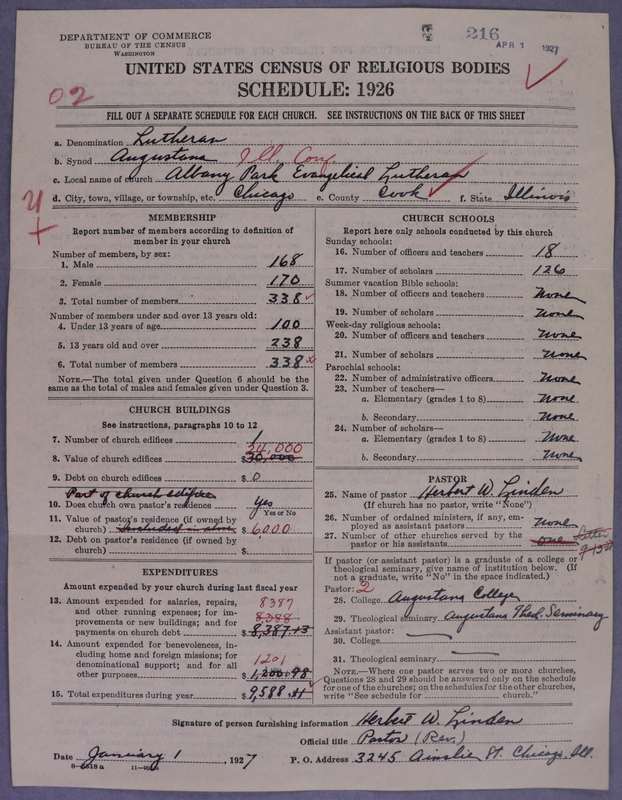 216
APR 1 1927
DEPARTMENT OF COMMERCE
BUREAU OF THE CENSUS
WASHINGTON
UNITED STATES CENSUS OF RELIGIOUS BODIES
SCHEDULE: 1926
02
FILL OUT A SEPARATE SCHEDULE FOR EACH CHURCH. SEE INSTRUCTIONS ON THE BACK OF THIS SHEET
a. Denomination Lutheran
b. Synod Augustana Ill. Conf.
c. Local name of church Albany Park Evangelical Lutheran
d. City, town, village, or township, etc. Chicago e. County Cook f. State Illinois
MEMBERSHIP
Report number of members according to definition of
member in your church
Number of members, by sex:
1. Male 168
2. Female 170
3. Total number of members 338
Number of members under and over 13 years old:
4. Under 13 years of age 100
5. 13 years old and over 238
6. Total number of members 338
NOTE.—The total given under Question 6 should be the
same as the total of males and females given under Question 3.
CHURCH BUILDINGS
See instructions, paragraphs 10 to 12
7. Number of church edifices 1
24,000
8. Value of church edifices $ 30,000
9. Debt on church edifices $ 0
Part of church edifice
10. Does church own pastor's residence Yes
Yes or No
11. Value of pastor's residence (if owned by
church) Included in above $ 6,000
12. Debt on pastor's residence (if owned by
church) $
EXPENDITURES
Amount expended by your church during last fiscal year
13. Amount expended for salaries, repairs,
and other running expenses; for im-
provements or new buildings; and for
payments on church debt
8387
8388
$ 8,387.43
14. Amount expended for benevolences, in-
cluding home and foreign missions; for
denominational support; and for all
other purposes
1201
$ 1,200.98
15. Total expenditures during year $ 9,588.41
CHURCH SCHOOLS
Report here only schools conducted by this church
Sunday schools:
16. Number of officers and teachers 18
17. Number of scholars 126
Summer vacation Bible schools:
18. Number of officers and teachers None
19. Number of scholars None
Week-day religious schools:
20. Number of officers and teachers None
21. Number of scholars None
Parochial schools:
22. Number of administrative officers None
23. Number of teachers—
a. Elementary (grades 1 to 8) None
b. Secondary None
24. Number of scholars—
a. Elementary (grades 1 to 8) None
b. Secondary None
PASTOR
25. Name of pastor Herbert W. Linden
(If church has no pastor, write "None")
26. Number of ordained ministers, if any, em-
ployed as assistant pastors None
27. Number of other churches served by the
pastor or his assistants one Letter
If pastor (or assistant pastor) is a graduate of a college or
theological seminary, give name of institution below. (If
not a graduate, write "No" in the space indicated.)
Pastor: 2
28. College Augustana College
29. Theological seminary Augustana Theol. Seminary
Assistant pastor:
30. College
31. Theological seminary
NOTE.—Where one pastor serves two or more churches,
Questions 28 and 29 should be answered only on the schedule
for one of the churches; on the schedules for the other churches,
write "See schedule for church."
Signature of person furnishing information Herbert W. Linden
Official title Pastor (Rev.)
Date January 1, 1927 P. O. Address 3245 Ainslie St. Chicago, Ill.